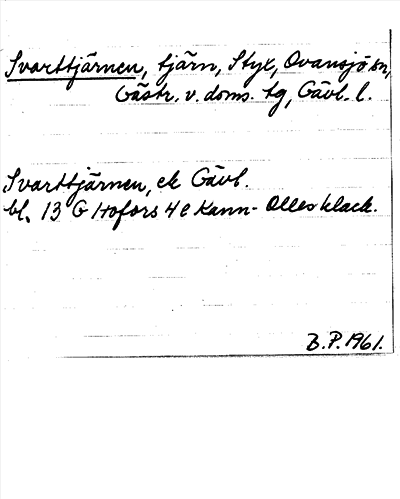 Svarttjärnen, tjärn, Styx, Ovansjö sn,
Gästr. v. doms. tg, Gävl. l.
Svarttjärnen, ek Gävl.
bl. 13 G Hofors 4 e Kann- Olles klack.
B.P. 1961.